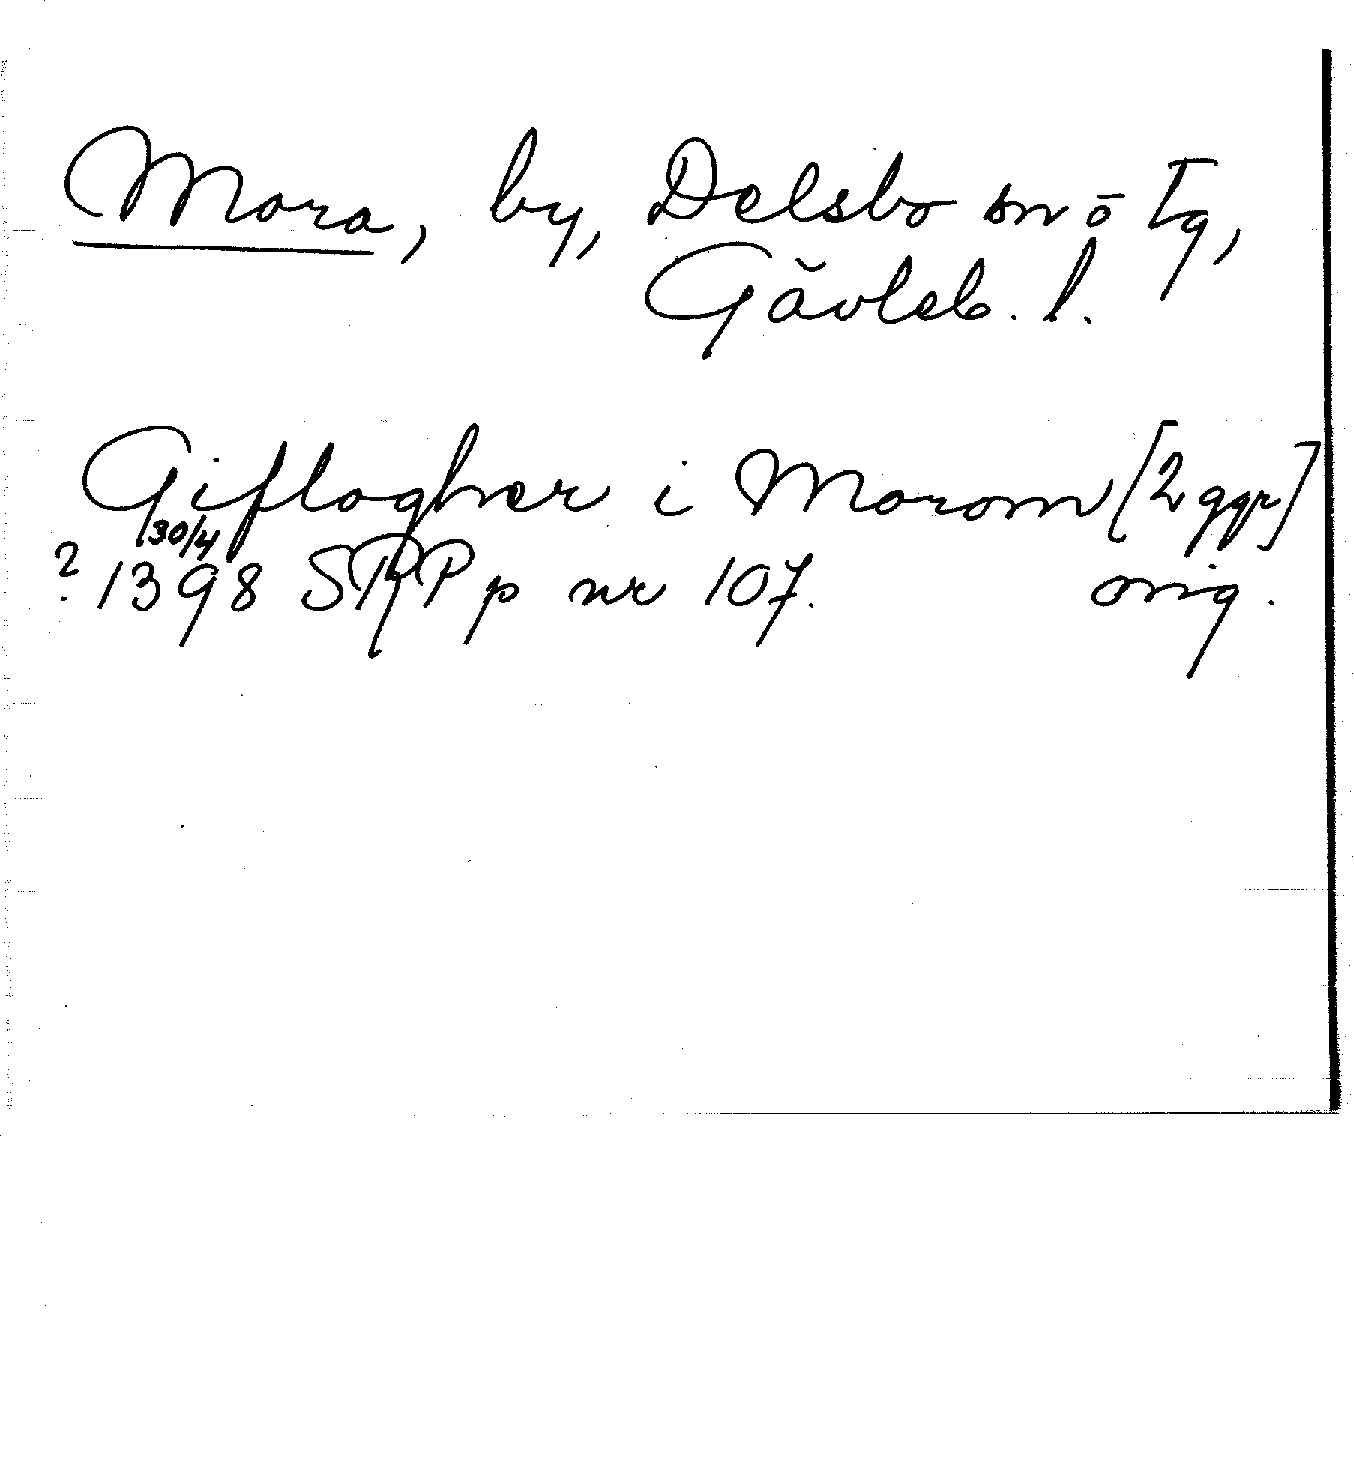 Mora, by, Delsbo sn o Tg,
Gävleb. l.
Giflogher i Morom [2 ggr]
30/4
? 1398 SRPp nr 107. orig.